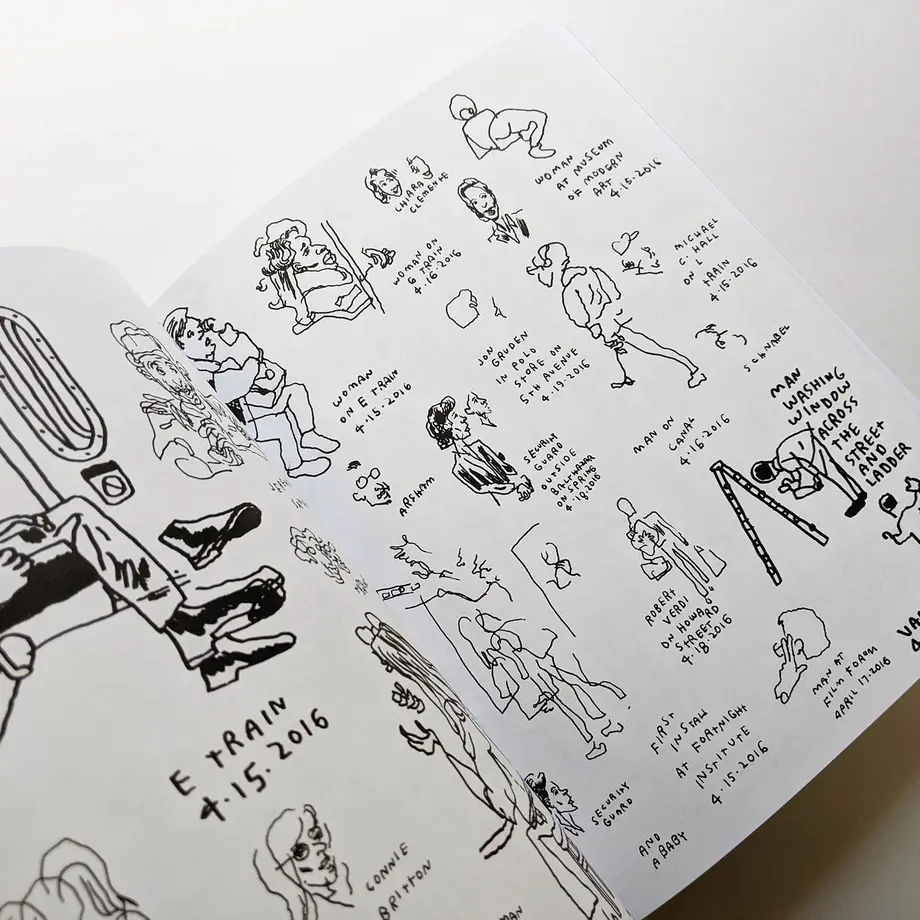 WOMAN
AT MUSEUM
OF MODERN
ART
4.15.2016
CHIARA
CLEMENTE
MICHAEL
C. HALL
ON L
TRAIN
4.15.2016
WOMAN ON
E TRAIN
4.16.2016
SCHNABEL
JON
GRUDEN
IN POLO
STORE ON
5TH AVENUE
4.19.2016
WOMAN
ON E TRAIN
4.15.2016
MAN
WASHING
WINDOW
ACROSS
THE
STREET
AND
LADDER
MAN ON
CANAL
4.16.2016
SECURITY
GUARD
OUTSIDE
BALTHAZAR
ON SPRING
4.18.2016
ARSHAM
ROBERT
VERDI
ON HOWARD
STREET
4.18.2016
MAN AT
FILM FORUM
APRIL 17.2016
FIRST
INSTALL
AT FORTNIGHT
INSTITUTE
4.15.2016
SECURITY
GUARD
AND
A BABY
E TRAIN
4.15.2016
CONNIE
BRITTON